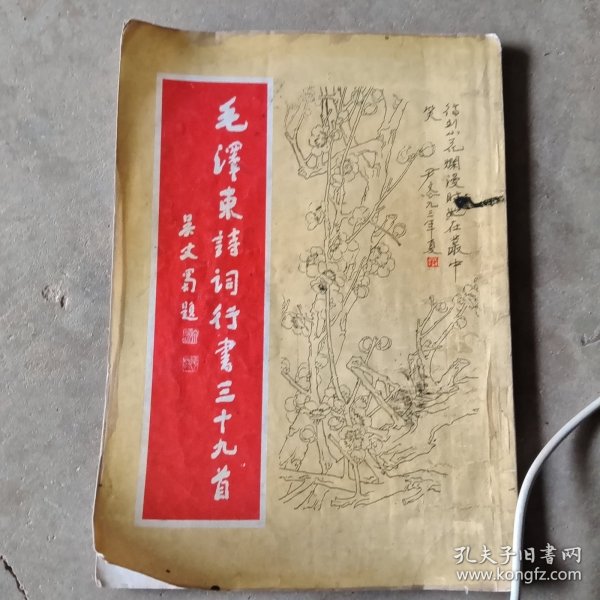 毛澤東詩詞行書三十九首
吴丈蜀題
待到山花爛漫時她在叢中
笑
九三年夏
孔夫子旧書网
www.kongfz.com